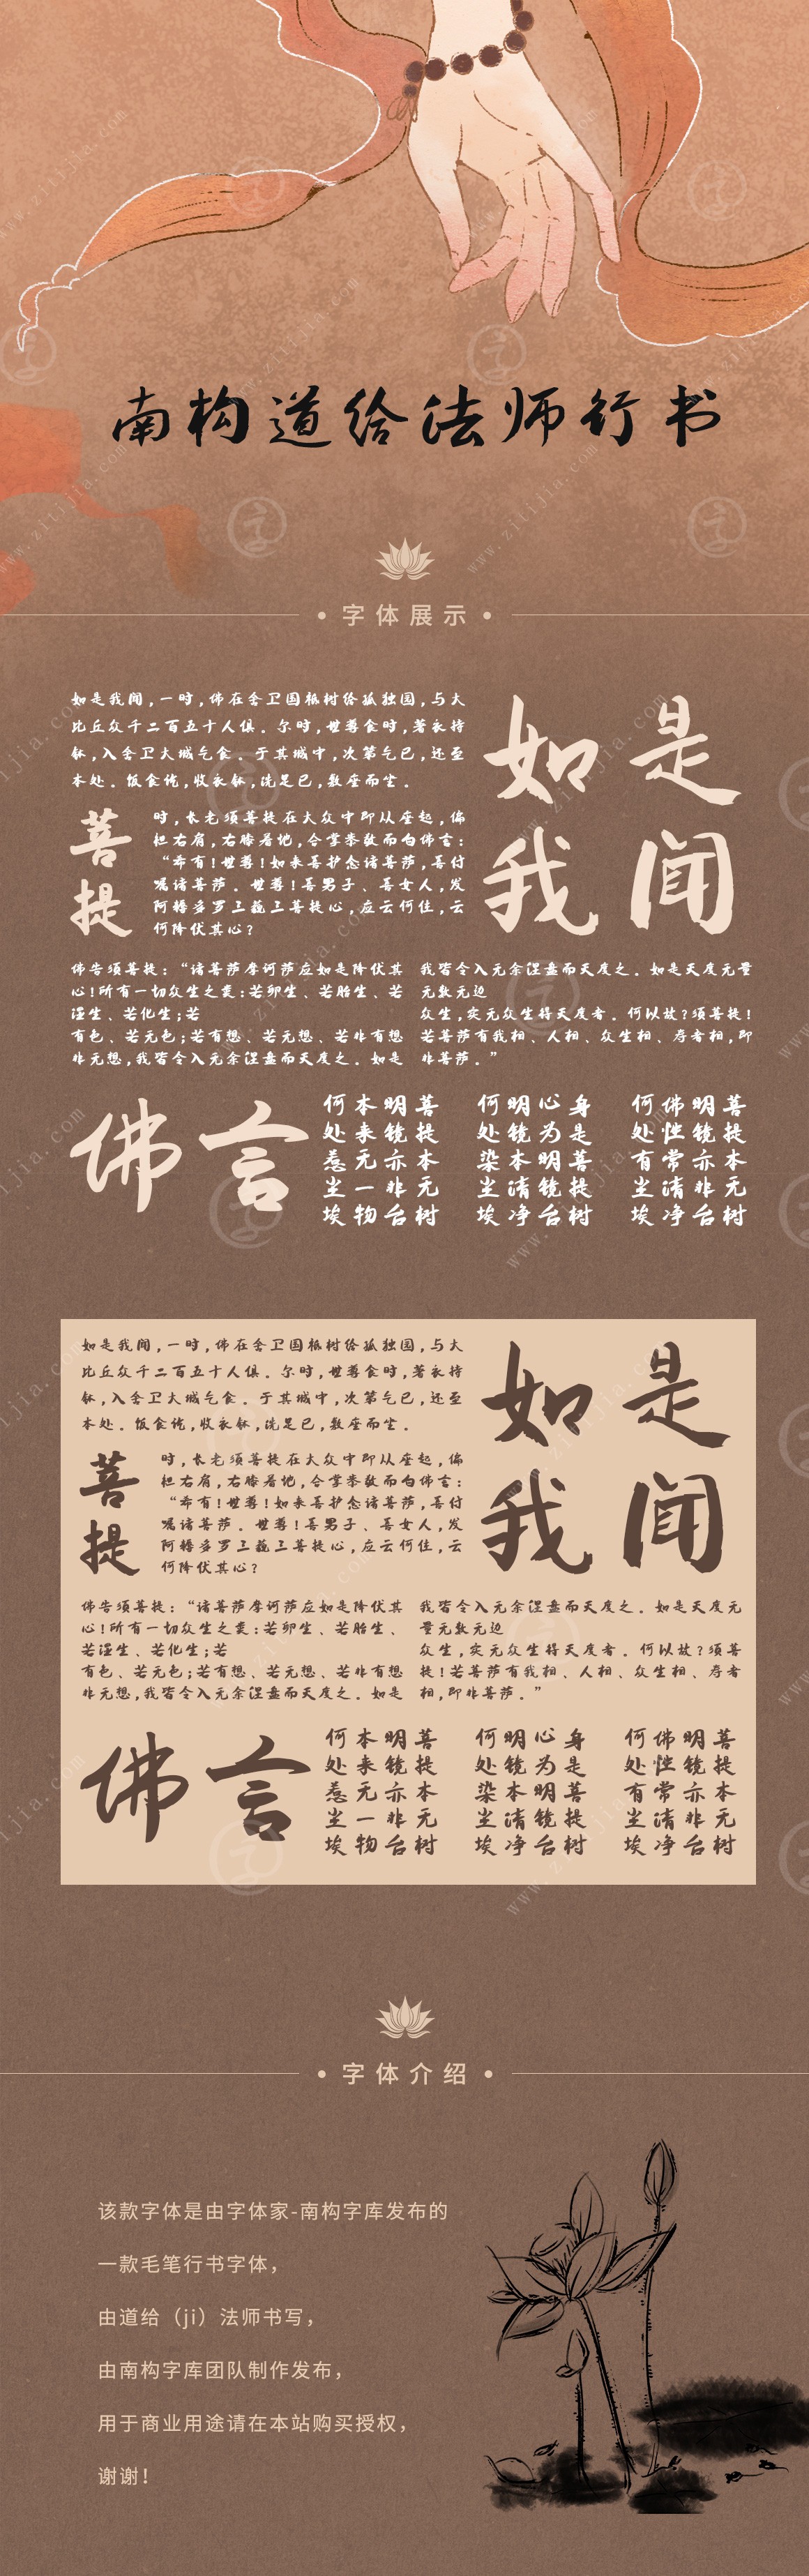 南构道给法师行书
字体展示
如是我闻,一时,佛在舍卫国祇树给孤独园,与大
比丘众千二百五十人俱。尔时,世尊食时,著衣持
钵,入舍卫大城乞食。于其城中,次第乞已,还至
本处。饭食讫,收衣钵,洗足已,敷座而坐。
菩提
时,长老须菩提在大众中即从座起,偏
袒右肩,右膝着地,合掌恭敬而白佛言:
“希有!世尊!如来善护念诸菩萨,善付
嘱诸菩萨。世尊!善男子、善女人,发
阿耨多罗三藐三菩提心,应云何住,云
何降伏其心?
如是
我闻
佛告须菩提:“诸菩萨摩诃萨应如是降伏其
心!所有一切众生之类:若卵生、若胎生、若
湿生、若化生;若
有色、若无色;若有想、若无想、若非有想
非无想,我皆令入无余涅盘而灭度之。如是
我皆令入无余涅盘而灭度之。如是灭度无量
无数无边
众生,实无众生得灭度者。何以故?须菩提!
若菩萨有我相、人相、众生相、寿者相,即
非菩萨。”
佛言
菩提本无树
明镜亦非台
本来无一物
何处惹尘埃
身是菩提树
心为明镜台
明镜本清净
何处染尘埃
菩提本无树
明镜亦非台
佛性常清净
何处有尘埃
如是我闻,一时,佛在舍卫国祇树给孤独园,与大
比丘众千二百五十人俱。尔时,世尊食时,著衣持
钵,入舍卫大城乞食。于其城中,次第乞已,还至
本处。饭食讫,收衣钵,洗足已,敷座而坐。
菩提
时,长老须菩提在大众中即从座起,偏
袒右肩,右膝着地,合掌恭敬而白佛言:
“希有!世尊!如来善护念诸菩萨,善付
嘱诸菩萨。世尊!善男子、善女人,发
阿耨多罗三藐三菩提心,应云何住,云
何降伏其心?
如是
我闻
佛告须菩提:“诸菩萨摩诃萨应如是降伏其
心!所有一切众生之类:若卵生、若胎生、
若湿生、若化生;若
有色、若无色;若有想、若无想、若非有想
非无想,我皆令入无余涅盘而灭度之。如是
我皆令入无余涅盘而灭度之。如是灭度无
量无数无边
众生,实无众生得灭度者。何以故?须菩
提!若菩萨有我相、人相、众生相、寿者
相,即非菩萨。”
佛言
菩提本无树
明镜亦非台
本来无一物
何处惹尘埃
身是菩提树
心为明镜台
明镜本清净
何处染尘埃
菩提本无树
明镜亦非台
佛性常清净
何处有尘埃
字体介绍
该款字体是由字体家-南构字库发布的
一款毛笔行书字体，
由道给（ji）法师书写，
由南构字库团队制作发布，
用于商业用途请在本站购买授权，
谢谢！
www.zitijia.com